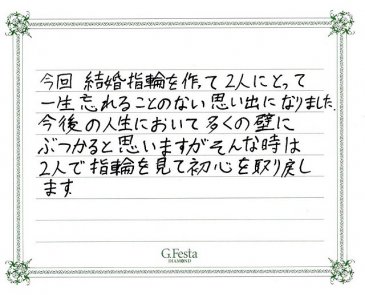 今回 結婚指輪を作って2人にとって
一生忘れることのない思い出になりました。
今後の人生において多くの壁に
ぶつかると思いますがそんな時は
2人で指輪を見て初心を取り戻し
ます
G.Festa
DIAMOND